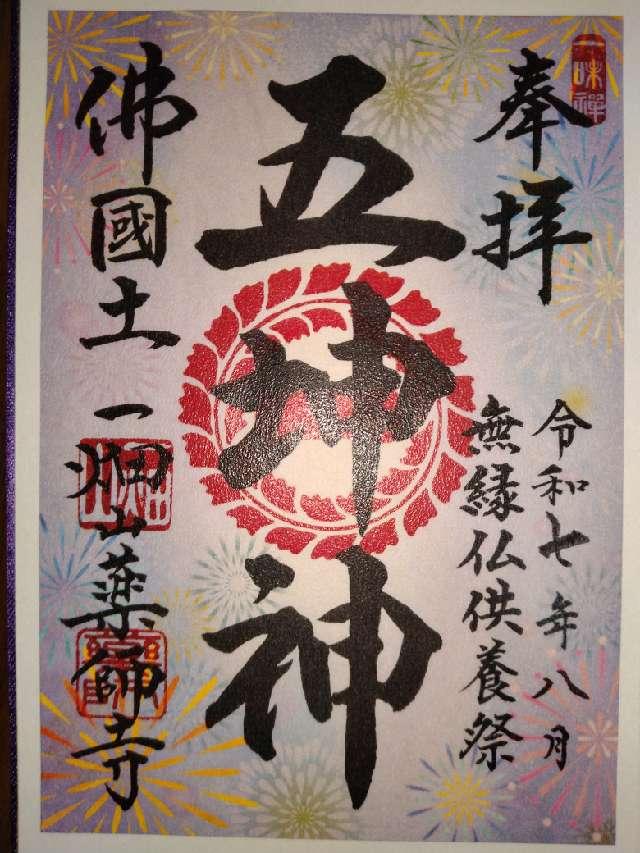 一味禅
奉拝
令和七年八月
無縁仏供養祭
五坤神
佛國土
一畑山薬師寺